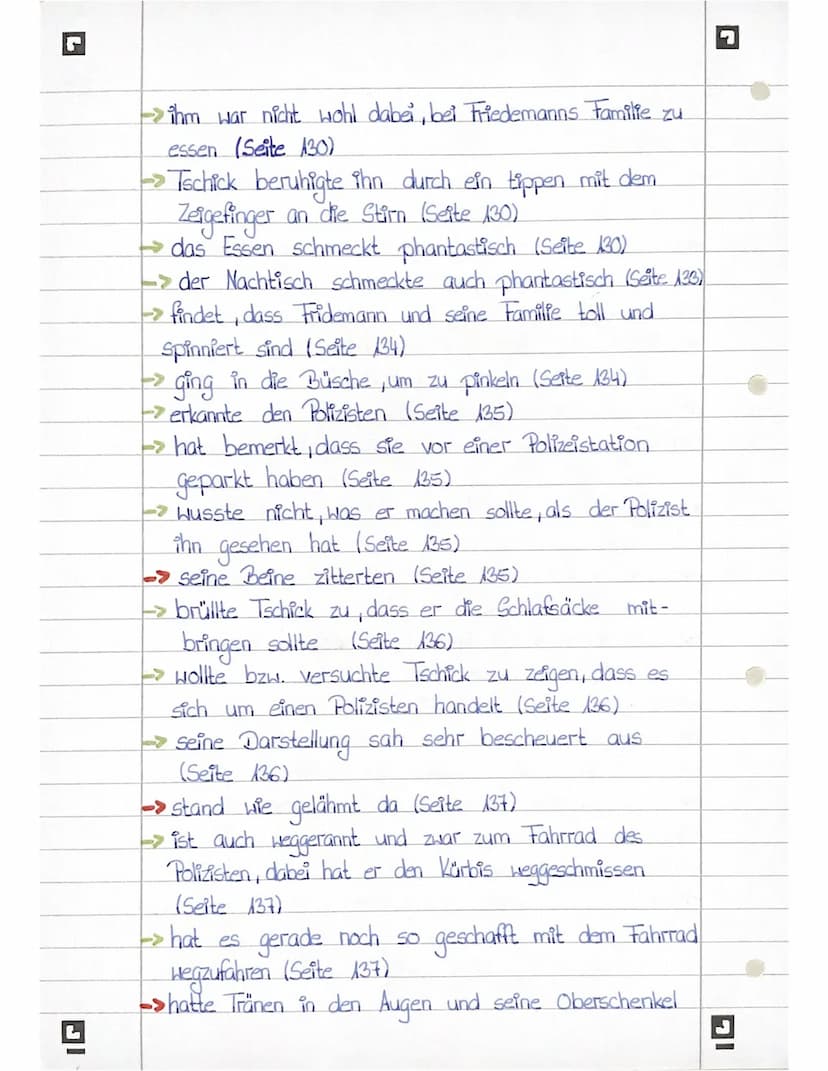 -> ihm war nicht wohl dabei, bei Friedemanns Familie zu
essen (Seite 130)
-> Tschick beruhigte ihn durch ein tippen mit dem
Zeigefinger an die Stirn (Seite 130)
-> das Essen schmeckt phantastisch (Seite 130)
-> der Nachtisch schmeckte auch phantastisch (Seite 133)
-> findet, dass Fridemann und seine Familie toll und
spinniert sind (Seite 134)
-> ging in die Büsche, um zu pinkeln (Seite 134)
-> erkannte den Polizisten (Seite 135)
-> hat bemerkt, dass sie vor einer Polizeistation
geparkt haben (Seite 135)
-> wusste nicht, was er machen sollte, als der Polizist
ihn gesehen hat (Seite 135)
-> seine Beine zitterten (Seite 135)
-> brüllte Tschick zu, dass er die Schlafsäcke mit-
bringen sollte (Seite 136)
-> wollte bzw. versuchte Tschick zu zeigen, dass es
sich um einen Polizisten handelt (Seite 136)
-> seine Darstellung sah sehr bescheuert aus
(Seite 136)
-> stand wie gelähmt da (Seite 137)
-> ist auch weggerannt und zwar zum Fahrrad des
Polizisten, dabei hat er den Kürbis weggeschmissen
(Seite 137)
-> hat es gerade noch so geschafft mit dem Fahrrad
wegzufahren (Seite 137)
-> hatte Tränen in den Augen und seine Oberschenkel